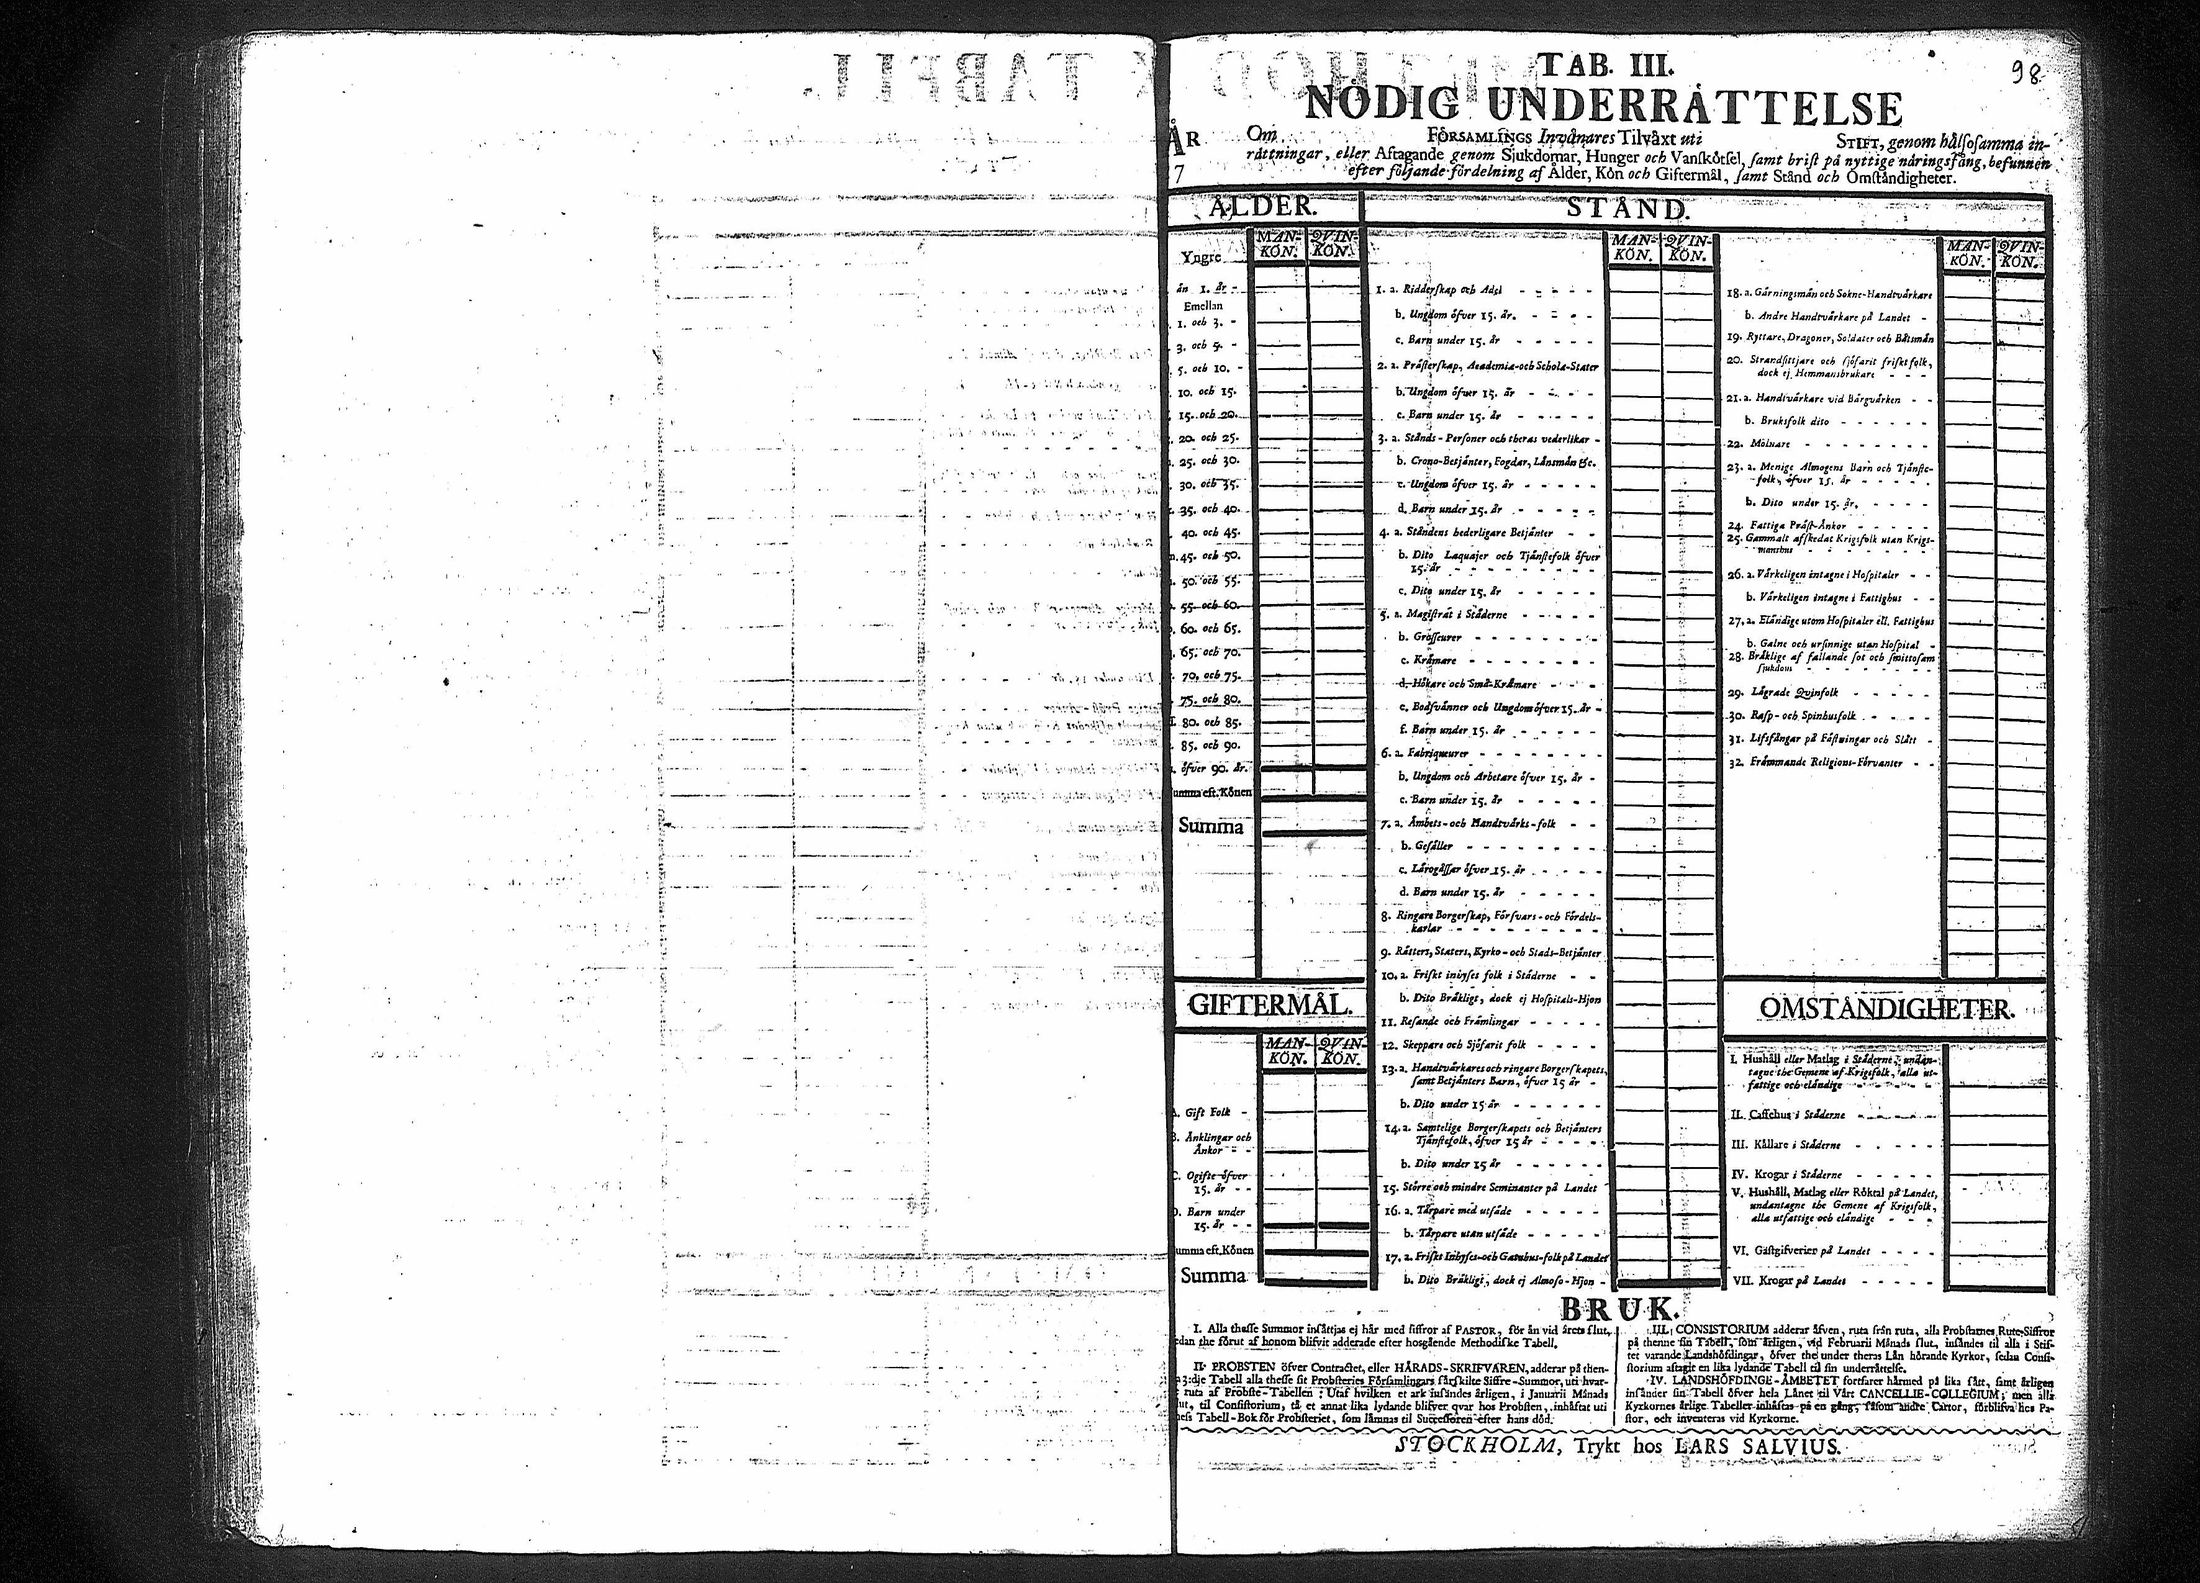 TAB. III.
98
NÖDIG UNDERRÄTTELSE
ÅR
7
Om FÖRSAMLINGS Invånares Tilväxt uti STIFT, genom hälsosamma in-
rättningar, eller Aftagande genom Sjukdomar, Hunger och Vanskötsel, samt brist på nyttige näringsfång, befunnen
efter följande fördelning af Ålder, Kön och Giftermål, samt Stånd och Omständigheter.
ÅLDER.
MAN-KÖN. QVIN-KÖN.
Yngre
än 1. år -
Emellan
1. och 3. -
3. och 5. -
5. och 10. -
10. och 15.
15. och 20.
20. och 25.
25. och 30.
30. och 35.
35. och 40.
40. och 45.
45. och 50.
50. och 55.
55. och 60.
60. och 65.
65. och 70.
70. och 75.
75. och 80.
80. och 85.
85. och 90.
öfver 90. år.
umma eft. Könen
Summa
GIFTERMÅL.
MAN-KÖN. QVIN-KÖN.
A. Gift Folk -
B. Änklingar och
Änkor - -
C. Ogifte öfver
15. år - -
D. Barn under
15. år - -
umma eft. Könen
Summa
STÅND.
MAN-KÖN. QVIN-KÖN.
1. a. Ridderskap och Adel - - - - -
b. Ungdom öfver 15. år. - - - -
c. Barn under 15. år - - - - -
2. a. Prästerskap, Academiæ-och Scholæ-Stater
b. Ungdom öfver 15. år - - - -
c. Barn under 15. år - - - - -
3. a. Stånds-Personer och theras vederlikar -
b. Crono-Betjänter, Fogdar, Länsmän &c.
c. Ungdom öfver 15. år - - - - -
d. Barn under 15. år - - - - -
4. a. Ståndens hederligare Betjänter - -
b. Dito Laquajer och Tjänstefolk öfver
15. år - - - - - - - - -
c. Dito under 15. år - - - - -
5. a. Magistrat i Städerne - - - - -
b. Grosseurer - - - - - - -
c. Krämare - - - - - - -
d. Hökare och Små-Krämare - - -
e. Bodsvänner och Ungdom öfver 15. år -
f. Barn under 15. år - - - - -
6. a. Fabriqueurer - - - - - - -
b. Ungdom och Arbetare öfver 15. år -
c. Barn under 15. år - - - - -
7. a. Ämbets-och Handtvärks-folk - -
b. Gesäller - - - - - - - -
c. Lärogåssar öfver 15. år - - - -
d. Barn under 15. år - - - - -
8. Ringare Borgerskap, Försvars-och Fördels-
karlar - - - - - - - - -
9. Rätters, Staters, Kyrko-och Stads-Betjänter
10. a. Friskt inhyses folk i Städerne - -
b. Dito Bräkligt, dock ej Hospitals-Hjon
11. Resande och Främlingar - - - -
12. Skeppare och Sjöfarit folk - - - -
13. a. Handtvärkares och ringare Borgerskapets,
samt Betjänters Barn, öfver 15 år -
b. Dito under 15 år - - - - -
14. a. Samtelige Borgerskapets och Betjänters
Tjänstefolk, öfver 15 år - - - -
b. Dito under 15 år - - - - -
15. Större och mindre Seminanter på Landet
16. a. Tårpare med utsäde - - - - -
b. Tårpare utan utsäde - - - - -
17. a. Friskt Inhyses-och Gatuhus-folk på Landet
b. Dito Bräkligt, dock ej Almoso-Hjon -
MAN-KÖN. QVIN-KÖN.
18. a. Gärningsmän och Sokne-Handtvärkare
b. Andre Handtvärkare på Landet -
19. Ryttare, Dragoner, Soldater och Båtsmän
20. Strandsittjare och sjöfarit friskt folk,
dock ej Hemmansbrukare - - -
21. a. Handtvärkare vid Bärgvärken - -
b. Bruksfolk dito - - - - - -
22. Mölnare - - - - - - - -
23. a. Menige Almogens Barn och Tjänste-
folk, öfver 15. år - - - - -
b. Dito under 15. år, - - - -
24. Fattiga Präst-Änkor - - - - -
25. Gammalt afskedat Krigsfolk utan Krigs-
manshus - - - - - - - -
26. a. Värkeligen intagne i Hospitaler - -
b. Värkeligen intagne i Fattighus - -
27. a. Eländige utom Hospitaler ell. Fattighus
b. Galne och ursinnige utan Hospital -
28. Bräklige af fallande sot och smittosam
sjukdom - - - - - - - -
29. Lägrade Qvinfolk - - - - -
30. Rasp-och Spinhusfolk - - - -
31. Lifsfångar på Fästningar och Slått -
32. Främmande Religions-Förvanter - -
OMSTÄNDIGHETER.
I. Hushåll eller Matlag i Städerne, undan-
tagne the Gemene af Krigsfolk, alla ut-
fattige och eländige - - - - -
II. Caffehus i Städerne - - - - -
III. Källare i Städerne - - - - -
IV. Krogar i Städerne - - - - -
V. Hushåll, Matlag eller Röktal på Landet,
undantagne the Gemene af Krigsfolk,
alla utfattige och eländige - - -
VI. Gästgifverier på Landet - - - -
VII. Krogar på Landet - - - - -
BRUK.
I. Alla thesse Summor insättjas ej här med siffror af PASTOR, för än vid årets slut,
edan the förut af honom blifvit adderade efter hosgående Methodiske Tabell.
II. PROBSTEN öfver Contractet, eller HÄRADS-SKRIFVAREN, adderar på then-
a 3:dje Tabell alla thesse sit Probsteries Församlingars särskilte Siffre-Summor, uti hvar-
ruta af Probste-Tabellen: Utaf hvilken et ark insändes årligen, i Januarii Månads
lut, til Consistorium, tå et annat lika lydande blifver qvar hos Probsten, inhäftat uti
hess Tabell-Bok för Probsteriet, som lämnas til Successoren efter hans död.
III. CONSISTORIUM adderar äfven, ruta från ruta, alla Probstarnes Rute-Siffror
på thenne sin Tabell, som årligen, vid Februarii Månads slut, insändes til alla i Stif-
tet varande Landshöfdingar, öfver the under theras Län hörande Kyrkor, sedan Consi-
storium aftagit en lika lydande Tabell til sin underrättelse.
IV. LANDSHÖFDINGE-ÄMBETET fortfarer härmed på lika sätt, samt årligen
insänder sin Tabell öfver hela Länet til Vårt CANCELLIE-COLLEGIUM; men alla
Kyrkornes årlige Tabeller inhäftas på en gång, såsom andre Cartor, förblifva hos Pa-
stor, och inventeras vid Kyrkorne.
STOCKHOLM, Trykt hos LARS SALVIUS.